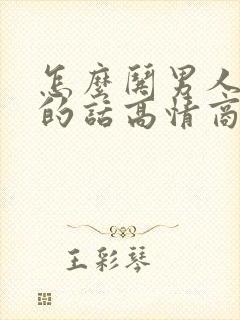 怎麼鬨男人
的話高情商
王彩琴